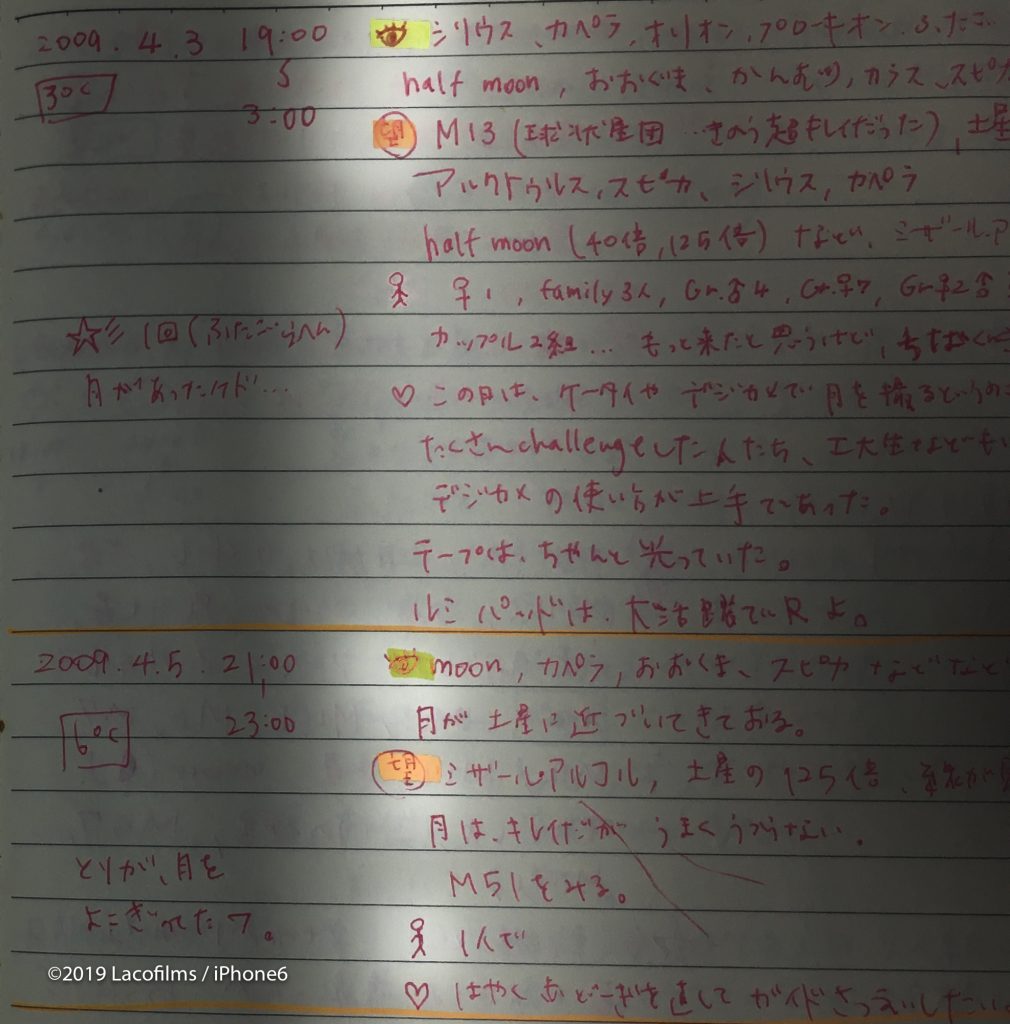 2009.4.3 19:00 シリウス、カペラ、オリオン、プロキオン、ふたご
3℃ half moon, おおぐま、かんむり, カラス、スピカ
3:00
望 M13 (球状星団 …きのう超キレイだった), 土星
アルクトゥルス, スピカ、シリウス, カペラ
half moon (40倍, 125倍) など、ミザール,ア
♀1, family 3人, Gr.♂4, Gr.♀7, Gr.♀2♂
☆彡 1回 (ふたごらへん) カップル2組… もっと来たと思うけど,
月があったケド… ♡ この日は、ケータイや デジカメで 月を撮るという
たくさんchallengeした人たち、工大生なども
デジカメの使い方が上手であった。
テープは、ちゃんと光っていた。
ルミパッドは、大活躍で
2009.4.5 21:00 moon, カペラ, おおぐま、スピカ などなど
23:00 月が土星に近づいてきておる。
6℃
望 ミザール,アルコル, 土星の125倍、
月は、キレイだが うまくうつらない。
とりが、月を M51をみる。
よこぎってたワ。
1人で
♡ はやく を直して ガイドさつえいしたい
©2019 Lacofilms / iPhone6